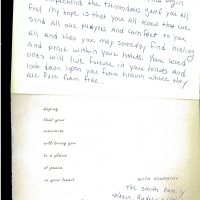 the tremendous grief you all
feel. My hope is that you all know that we
send all our prayers and comfort to you
all and that you may someday find healing
and peace within your hearts. Your loved
ones will live forever in your hearts and
look down upon you from heaven where they
are pain free.
Hoping
that your
memories
will bring you
to a place
of peace
in your heart.
WITH SYMPATHY
The Smith Family